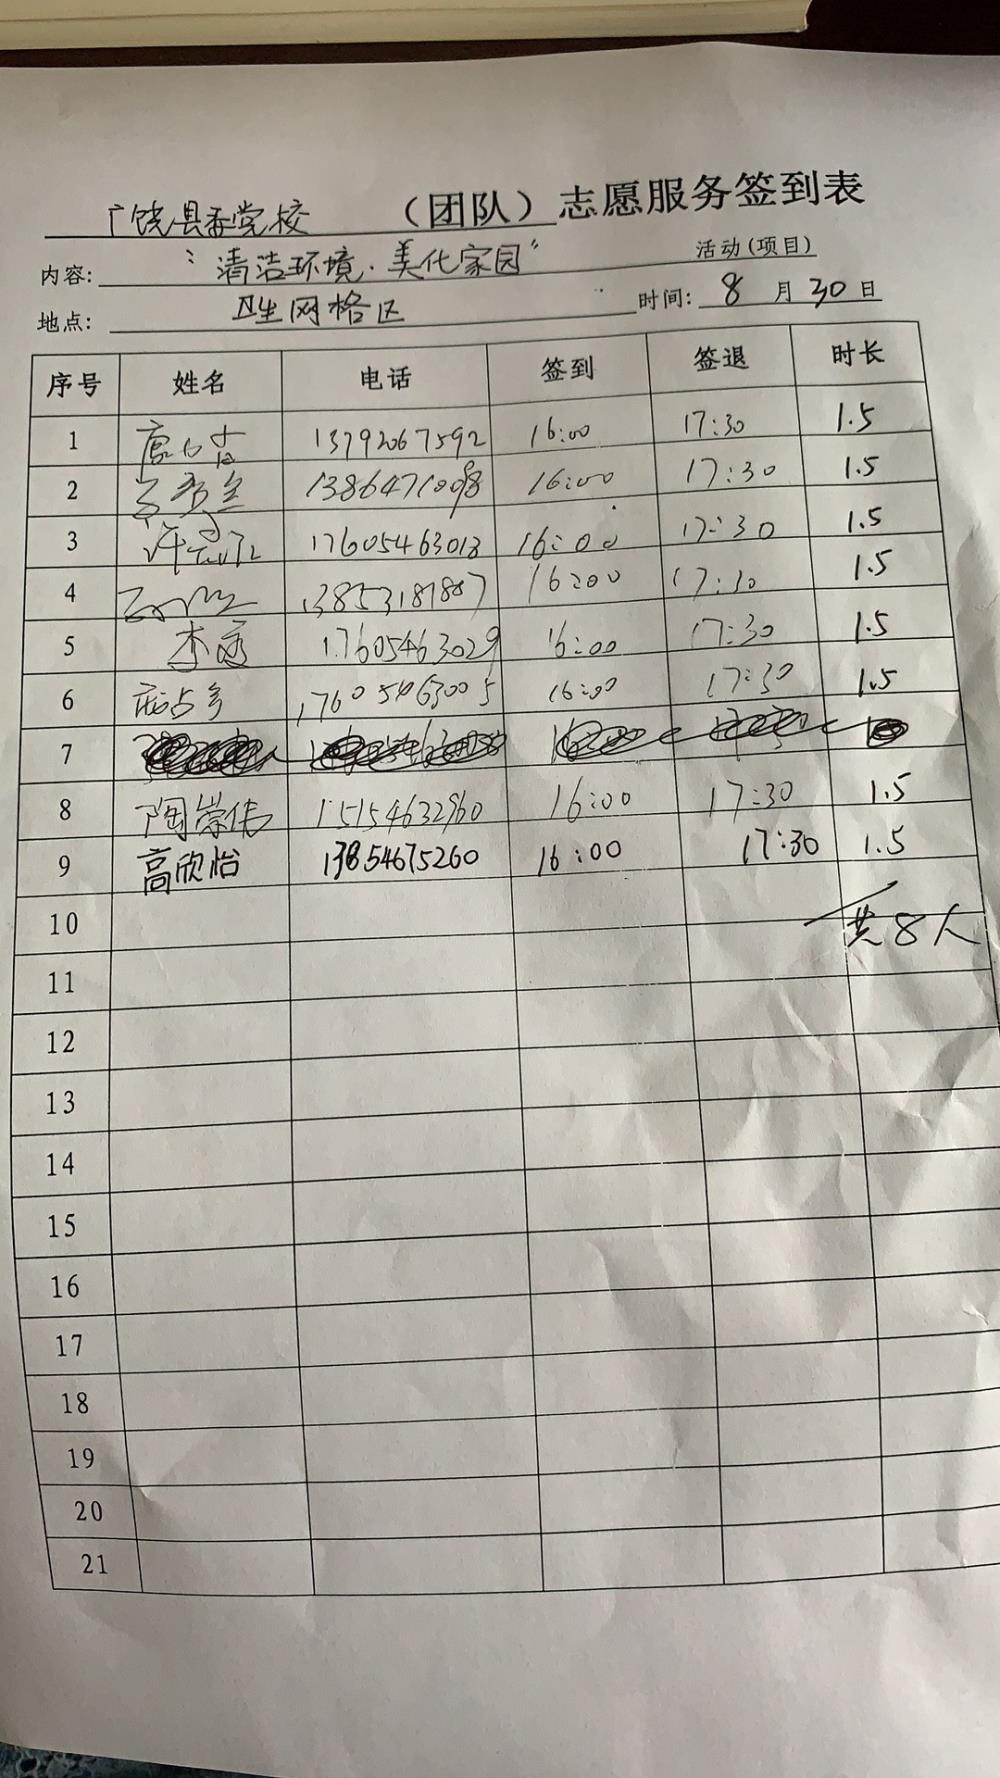 广饶县委党校 （团队）志愿服务签到表
内容: “清洁环境·美化家园” 活动(项目)
地点: 卫生网格区 时间: 8 月 30 日
序号 姓名 电话 签到 签退 时长
1 13792067592 16:00 17:30 1.5
2 13864710098 16:00 17:30 1.5
3 17605463013 16:00 17:30 1.5
4 16:00 17:30 1.5
5 17605463029 16:00 17:30 1.5
6 17605463005 16:00 17:30 1.5
7
8 陶崇伟 15154632960 16:00 17:30 1.5
9 高欣怡 13854675260 16:00 17:30 1.5
10 共8人
11
12
13
14
15
16
17
18
19
20
21